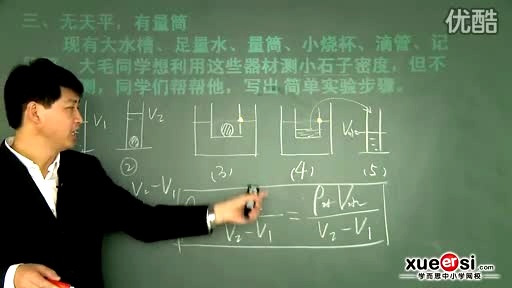 优酷
三、无天平，有量筒
现有大水槽、足量水、量筒、小烧杯、滴管、记
大毛同学想利用这些器材测小石子密度，但不
测，同学们帮帮他，写出简单实验步骤。
V₁
V₂
②
(3)
(4)
(5)
V₂-V₁
V₂-V₁
=
V₂-V₁
xueersi.com
学而思中小学网校